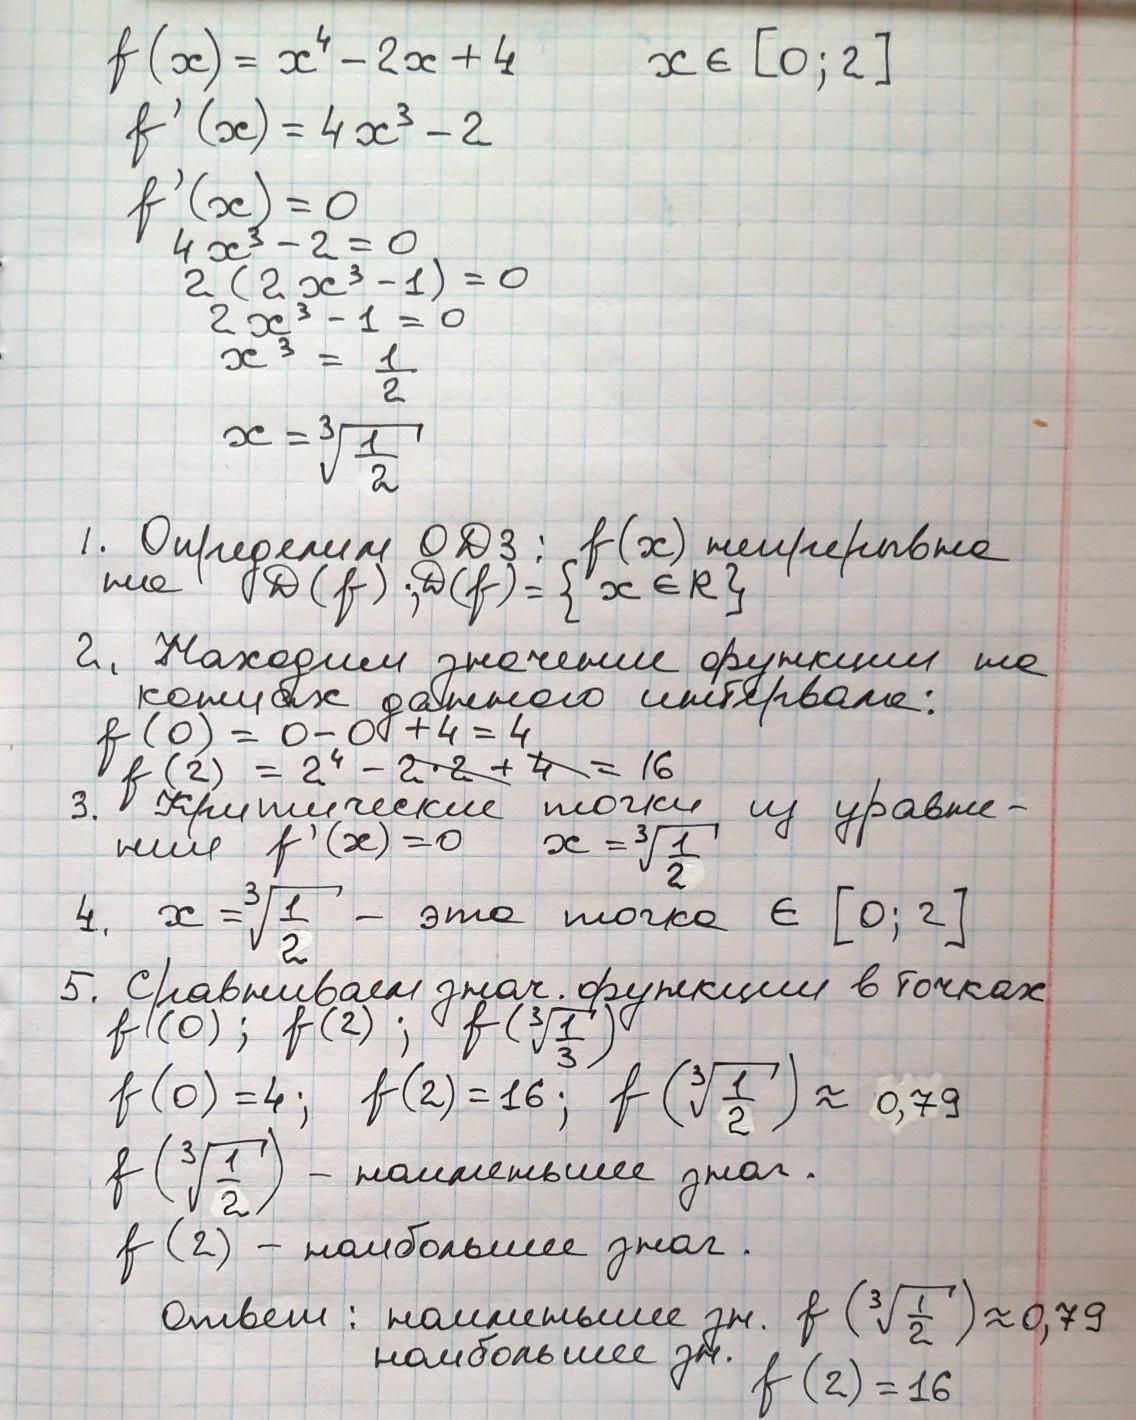 f(x) = x⁴ - 2x + 4 x ∈ [0; 2]
f'(x) = 4x³ - 2
f'(x) = 0
4x³ - 2 = 0
2(2x³ - 1) = 0
2x³ - 1 = 0
x³ = 1/2
x = ∛(1/2)
1. Определим ОДЗ: f(x) непрерывна
на D(f); D(f) = {x ∈ R}
2. Находим значение функции на
концах данного интервала:
f(0) = 0 - 0 + 4 = 4
f(2) = 2⁴ - 2·2 + 4 = 16
3. Критические точки из уравне-
ния f'(x) = 0 x = ∛(1/2)
4. x = ∛(1/2) - эта точка ∈ [0; 2]
5. Сравниваем знач. функции в точках
f(0); f(2); f(∛(1/3))
f(0) = 4; f(2) = 16; f(∛(1/2)) ≈ 0,79
f(∛(1/2)) - наименьшее знач.
f(2) - наибольшее знач.
Ответ: наименьшее зн. f(∛(1/2)) ≈ 0,79
наибольшее зн.
f(2) = 16